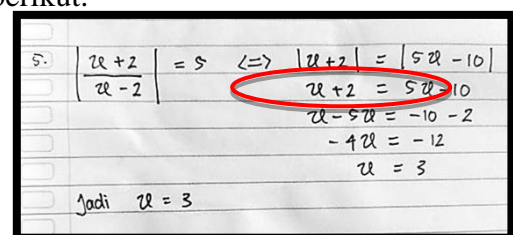 berikut:
5. |x + 2 / x - 2| = 5 <=> |x + 2| = |5x - 10|
x + 2 = 5x - 10
x - 5x = -10 - 2
- 4x = - 12
x = 3
Jadi x = 3